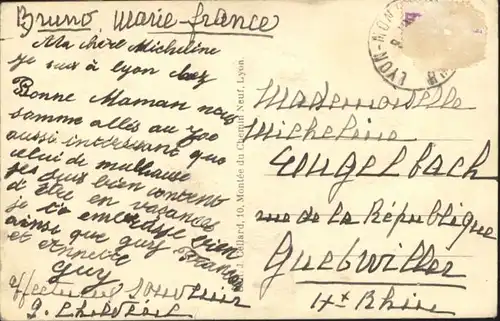 Bruno, Marie-france
Ma chère Micheline
je suis à Lyon chez
Bonne Maman nous
somme allés au zoo
aussi intéressant que
celui de mulhouse
je suis bien content
d'être en vacances
je t'embrasse bien
ainsi que guy
et Annette
Guy
affectueux souvenir
LYON-MON
Édit. J. Cellard, 10, Montée du Chemin Neuf, Lyon.
Mademoiselle
Micheline
Engelbach
rue de la République
Guebwiller
Ht Rhin